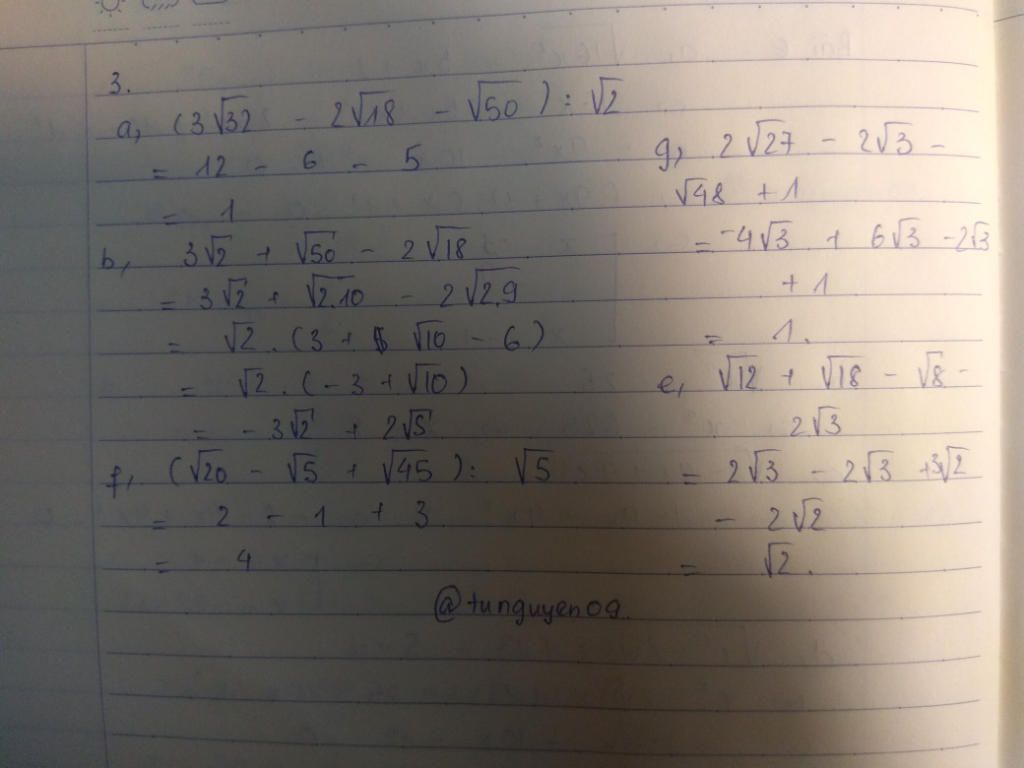 3.
a, (3√32 - 2√18 - √50) : √2
= 12 - 6 - 5
= 1
b, 3√2 + √50 - 2√18
= 3√2 + √2.10 - 2√2.9
= √2 . (3 + √10 - 6)
= √2 . (-3 + √10)
= -3√2 + 2√5
f, (√20 - √5 + √45) : √5
= 2 - 1 + 3
= 4
g, 2√27 - 2√3 -
√48 + 1
= -4√3 + 6√3 - 2√3
+ 1
= 1.
e, √12 + √18 - √8 -
2√3
= 2√3 - 2√3 + 3√2
- 2√2
= √2.
@tunguyen09